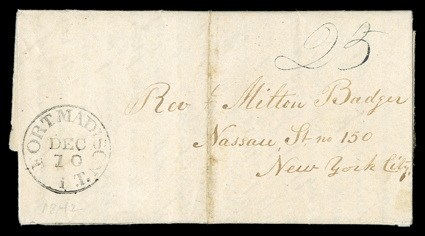 25
Rev Milton Badger
Nassau St no 150
New York City
FORT MADISON
DEC
10
I.T.
1842